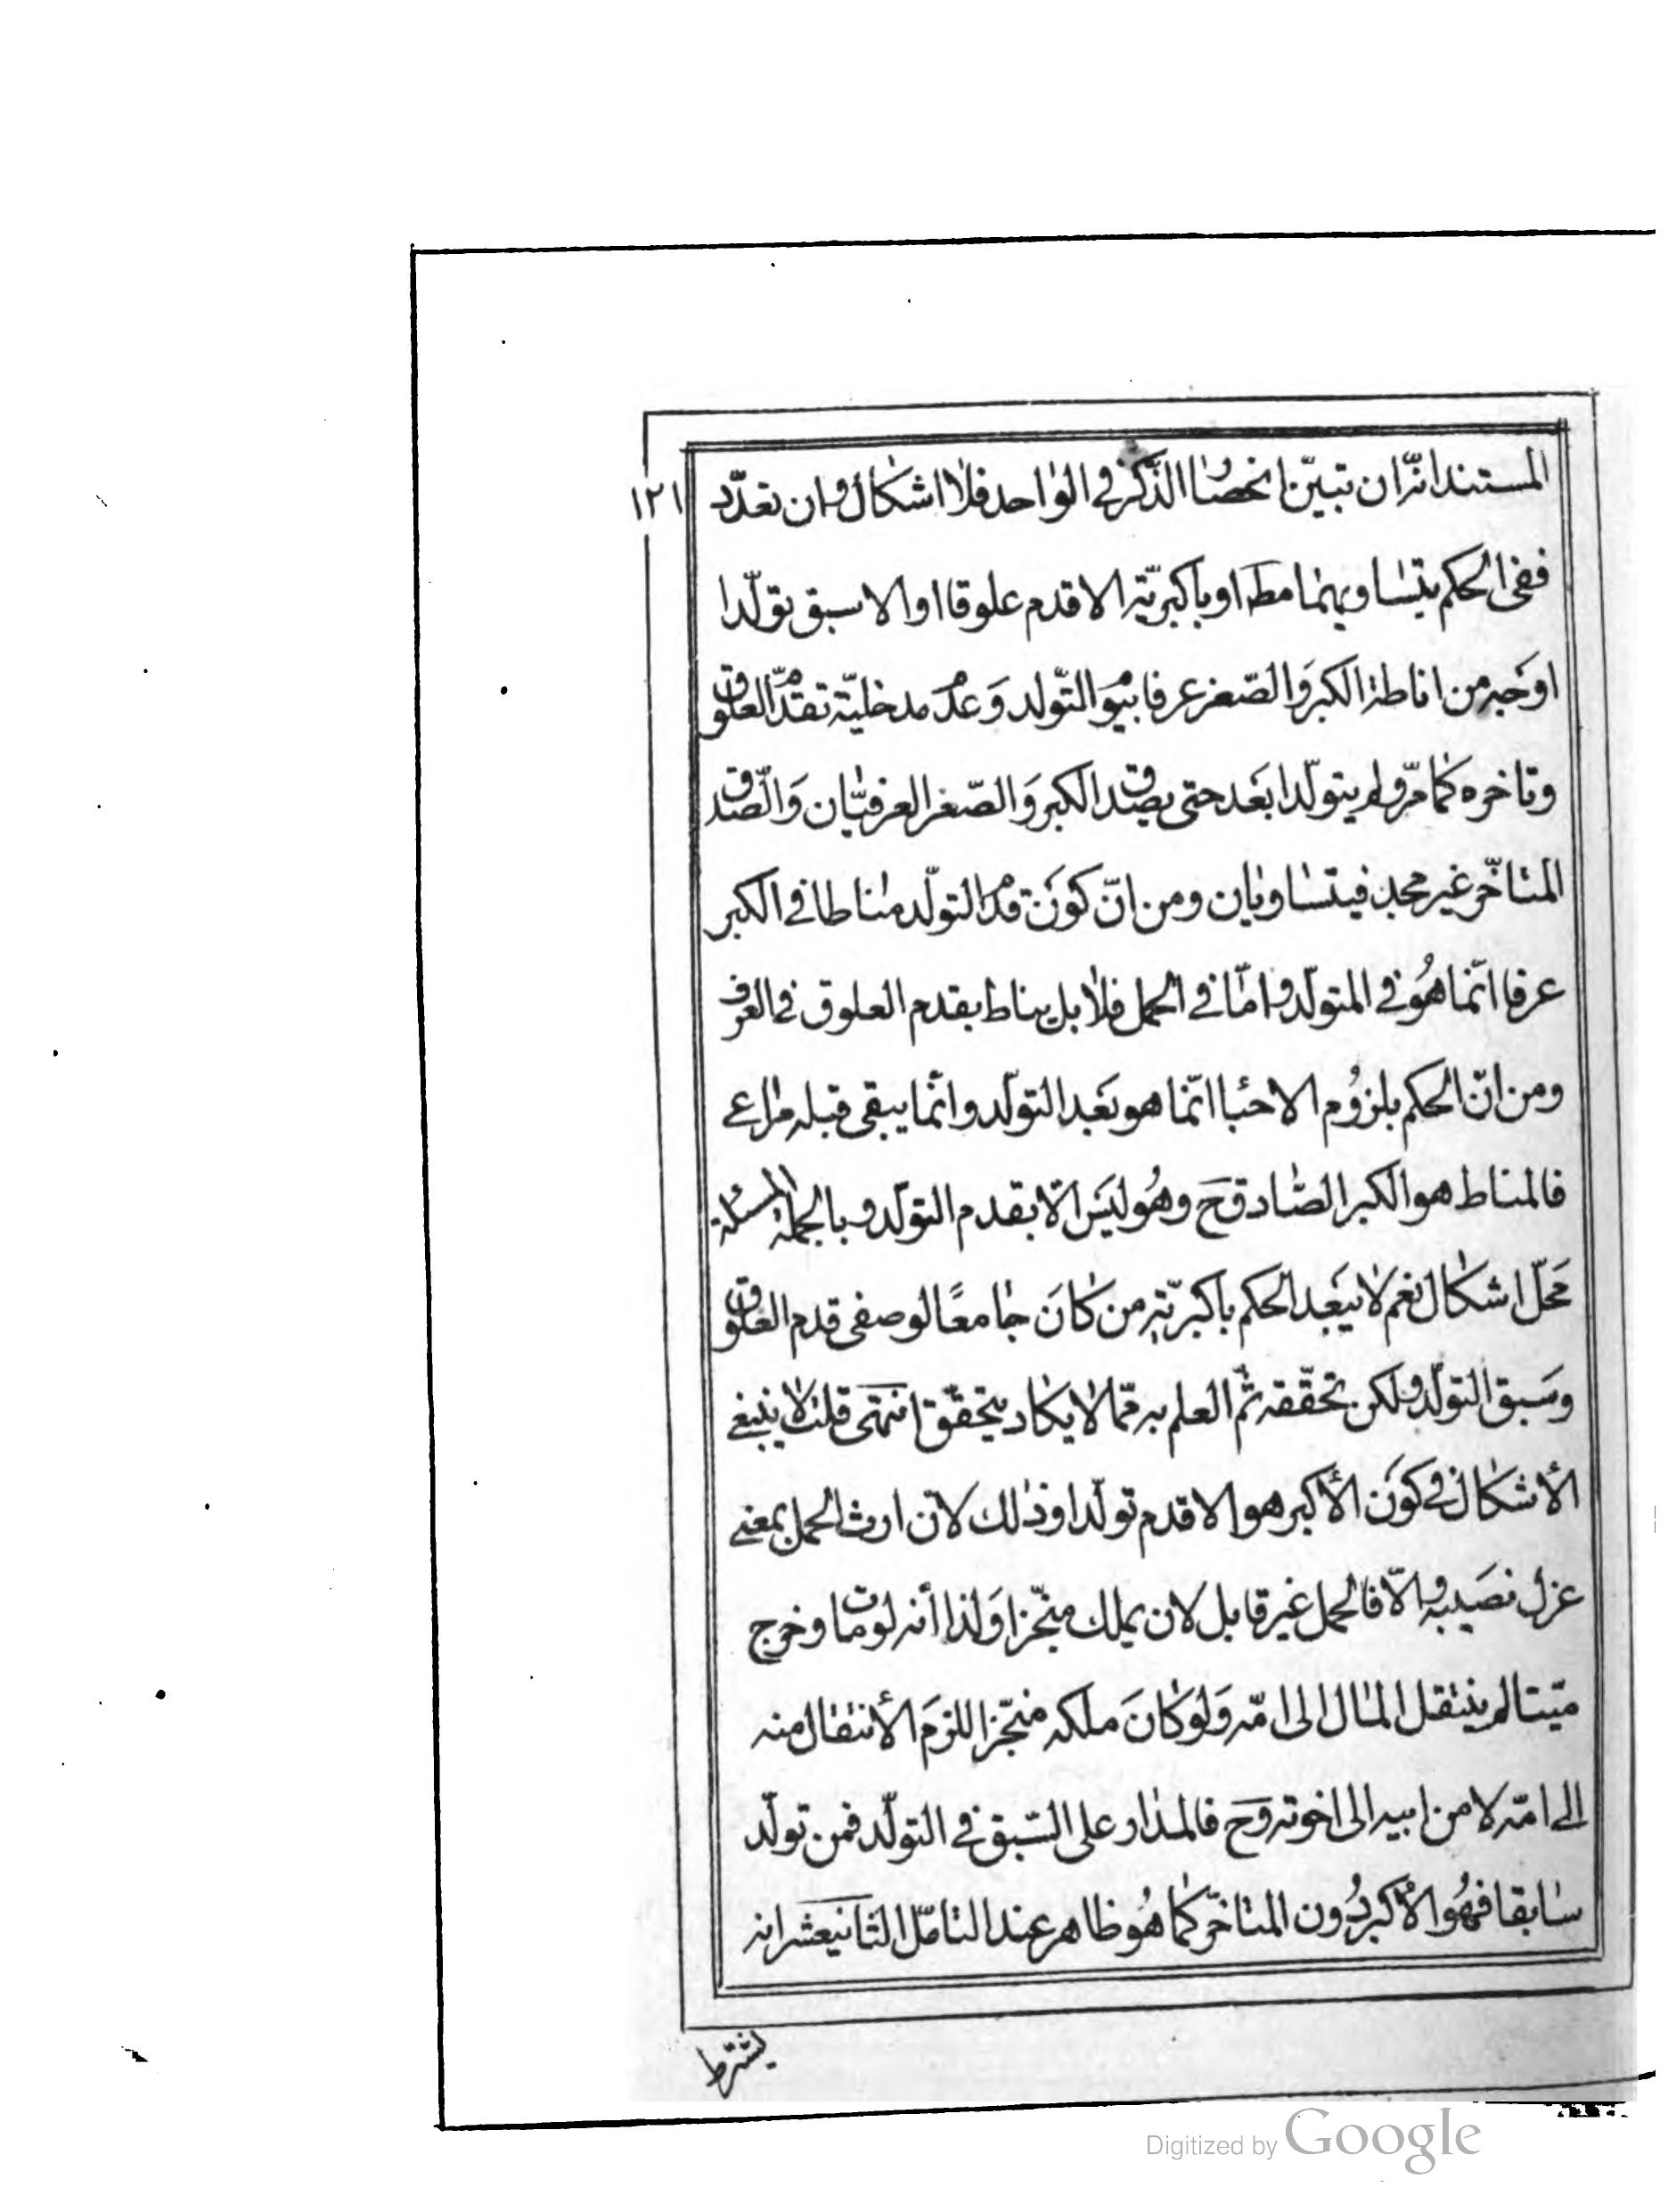 ١٢١
المستند انّه ان تبيّن انحصار الذّكر في الواحد فلا اشكال و ان تعدّد
ففى الحكم بتساويهما مطـ او باكبريّة الاقدم علوقا او الاسبق تولّدا
اوجه من اناطة الكبر و الصّغر عرفا بيوم التّولد وَ عدم مدخليّة تقدّم العلوق
و تاخره كما مرّ و لم يتولّدا بعَد حتى يصدق الكبر وَ الصّغر العرفيّان وَ الصّدق
المتاخّر غير مجد فيتساويان و من انّ كون قدم التولّد مناطا في الكبر
عرفا انّما هُو في المتولّد و امّا في الحمل فلا بل يناط بقدم العلوق في العرف
و من انّ الحكم بلزُوم الاحبا انّما هو بعَد التولّد و انّما يبقى قبله مراعى
فالمناط هو الكبر الصّادق ح و هُو ليَس الّا بقدم التولّد و بالجملة المسئلة
مَحلّ اشكال نعم لا يبعَد الحكم باكبريّة من كانَ جامعًا لوصفى قدم العلوق
و سَبق التولّد و لكن تحققه ثمّ العلم به ممّا لا يكاد يتحقّق انتهى قلت لا ينبغي
الأشكال في كوَن الأكبر هو الاقدم تولّدا و ذلك لانّ ارث الحمل بمعنى
عزل نصَيبه و الّا فالحمل غير قابل لان يملك منجّزا وَ لذا أنه لو مات و خرج
ميّتا لم ينتقل المال الى امّه وَ لو كانَ ملكه منجّزا للزمَ الأنتقال منه
الى امّه لا من ابيه الى اخوته وَ ح فالمدار على السّبق في التولّد فمن تولّد
سابقا فهُو الأكبر دُون المتاخّر كما هُو ظاهر عند التامّل الثانيعشر انه
يشترط
Digitized by Google